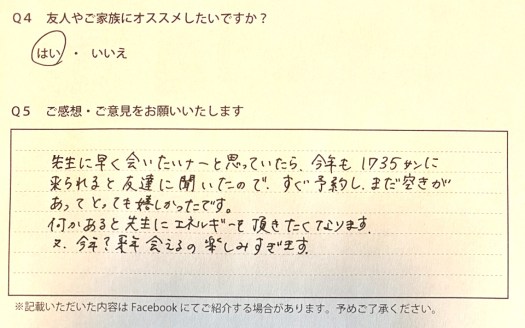 Q4 友人やご家族にオススメしたいですか?
はい ・ いいえ
Q5 ご感想・ご意見をお願いいたします
先生に早く会いたいナーと思っていたら、今年も1735サンに
来られると友達に聞いたので、すぐ予約し、まだ空きが
あってとっても嬉しかったです。
何かあると先生にエネルギーを頂きたくなります。
又、今年?来年会えるの楽しみすぎます。
※記載いただいた内容は Facebook にてご紹介する場合があります。予めご了承ください。